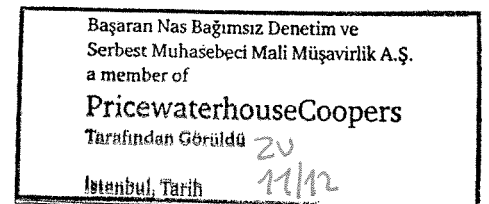 Başaran Nas Bağımsız Denetim ve
Serbest Muhasebeci Mali Müşavirlik A.Ş.
a member of
PricewaterhouseCoopers
Tarafından Görüldü ZU
İstanbul, Tarih 11/12